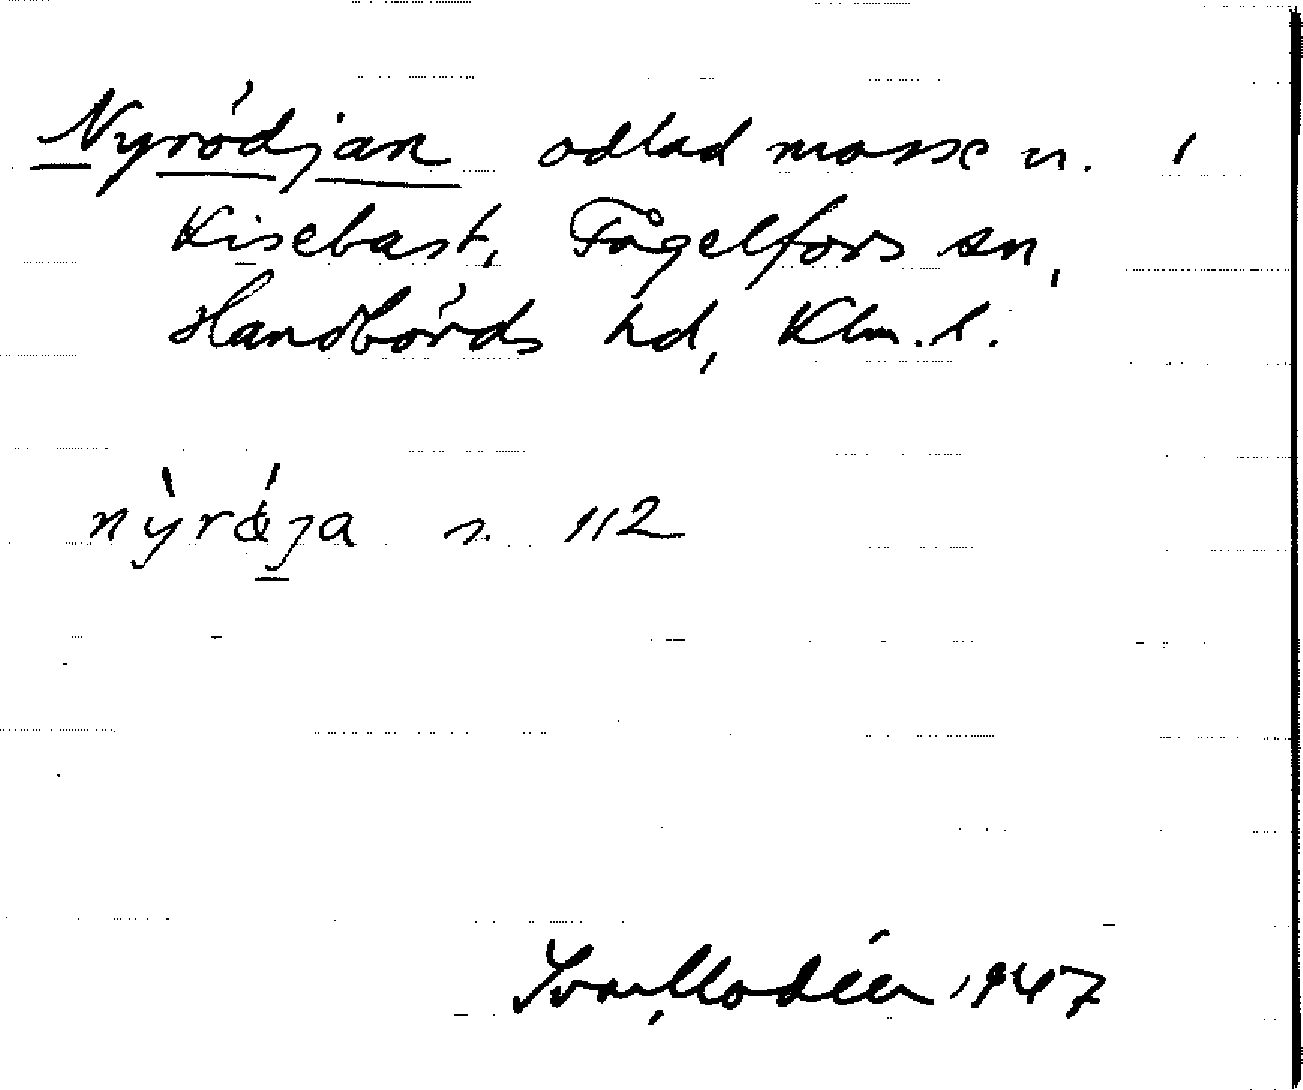 Nyrödjan odlad mosse n. i
Kisebast, Fågelfors sn,
Handbörds hd, Klm. l.
s. 112
Ivar Modéer 1947